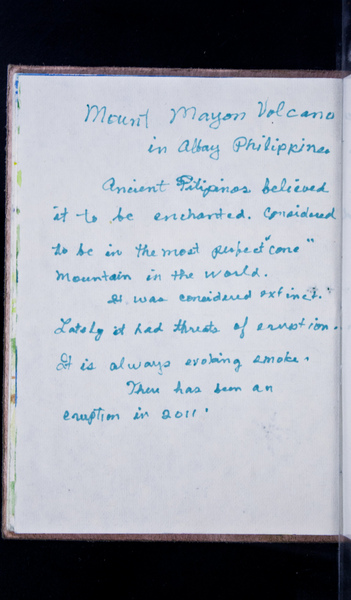 Mount Mayon Volcano
in Albay Philippines
Ancient Filipinos believed
it to be enchanted. Considered
to be in the most perfect "cone"
Mountain in the world.
It was considered extinct.
Lately it had threats of eruption.
It is always evoking smoke.
There has been an
eruption in 2011.